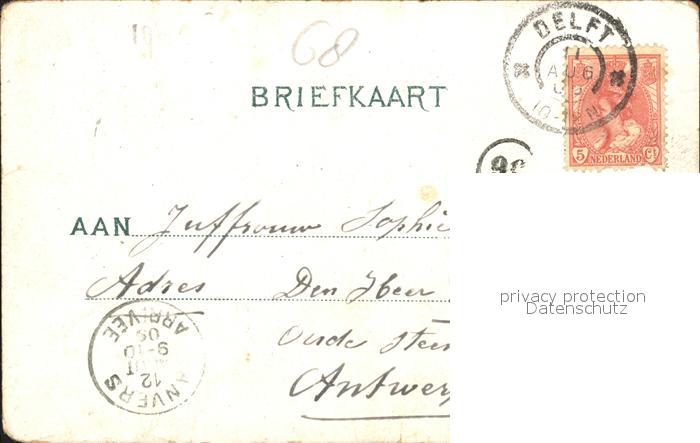 68
DELFT
11
AUG
10-
5 NEDERLAND Ct
BRIEFKAART
AAN Juffrouw Sophie
Adres Den Heer
Oude Steen
Antwer
ANVERS
12
AOUT
9-10
05
ARRIVEE
privacy protection
Datenschutz